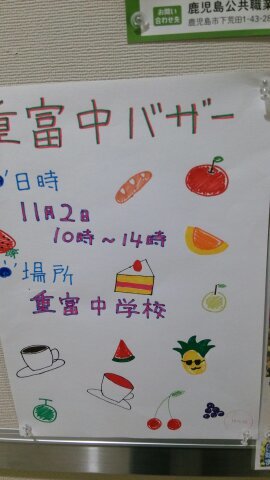 お問い
合わせ先
鹿児島公共職業
鹿児島市下荒田1-43-28
重富中バザー
日時
11月2日
10時～14時
場所
重富中学校